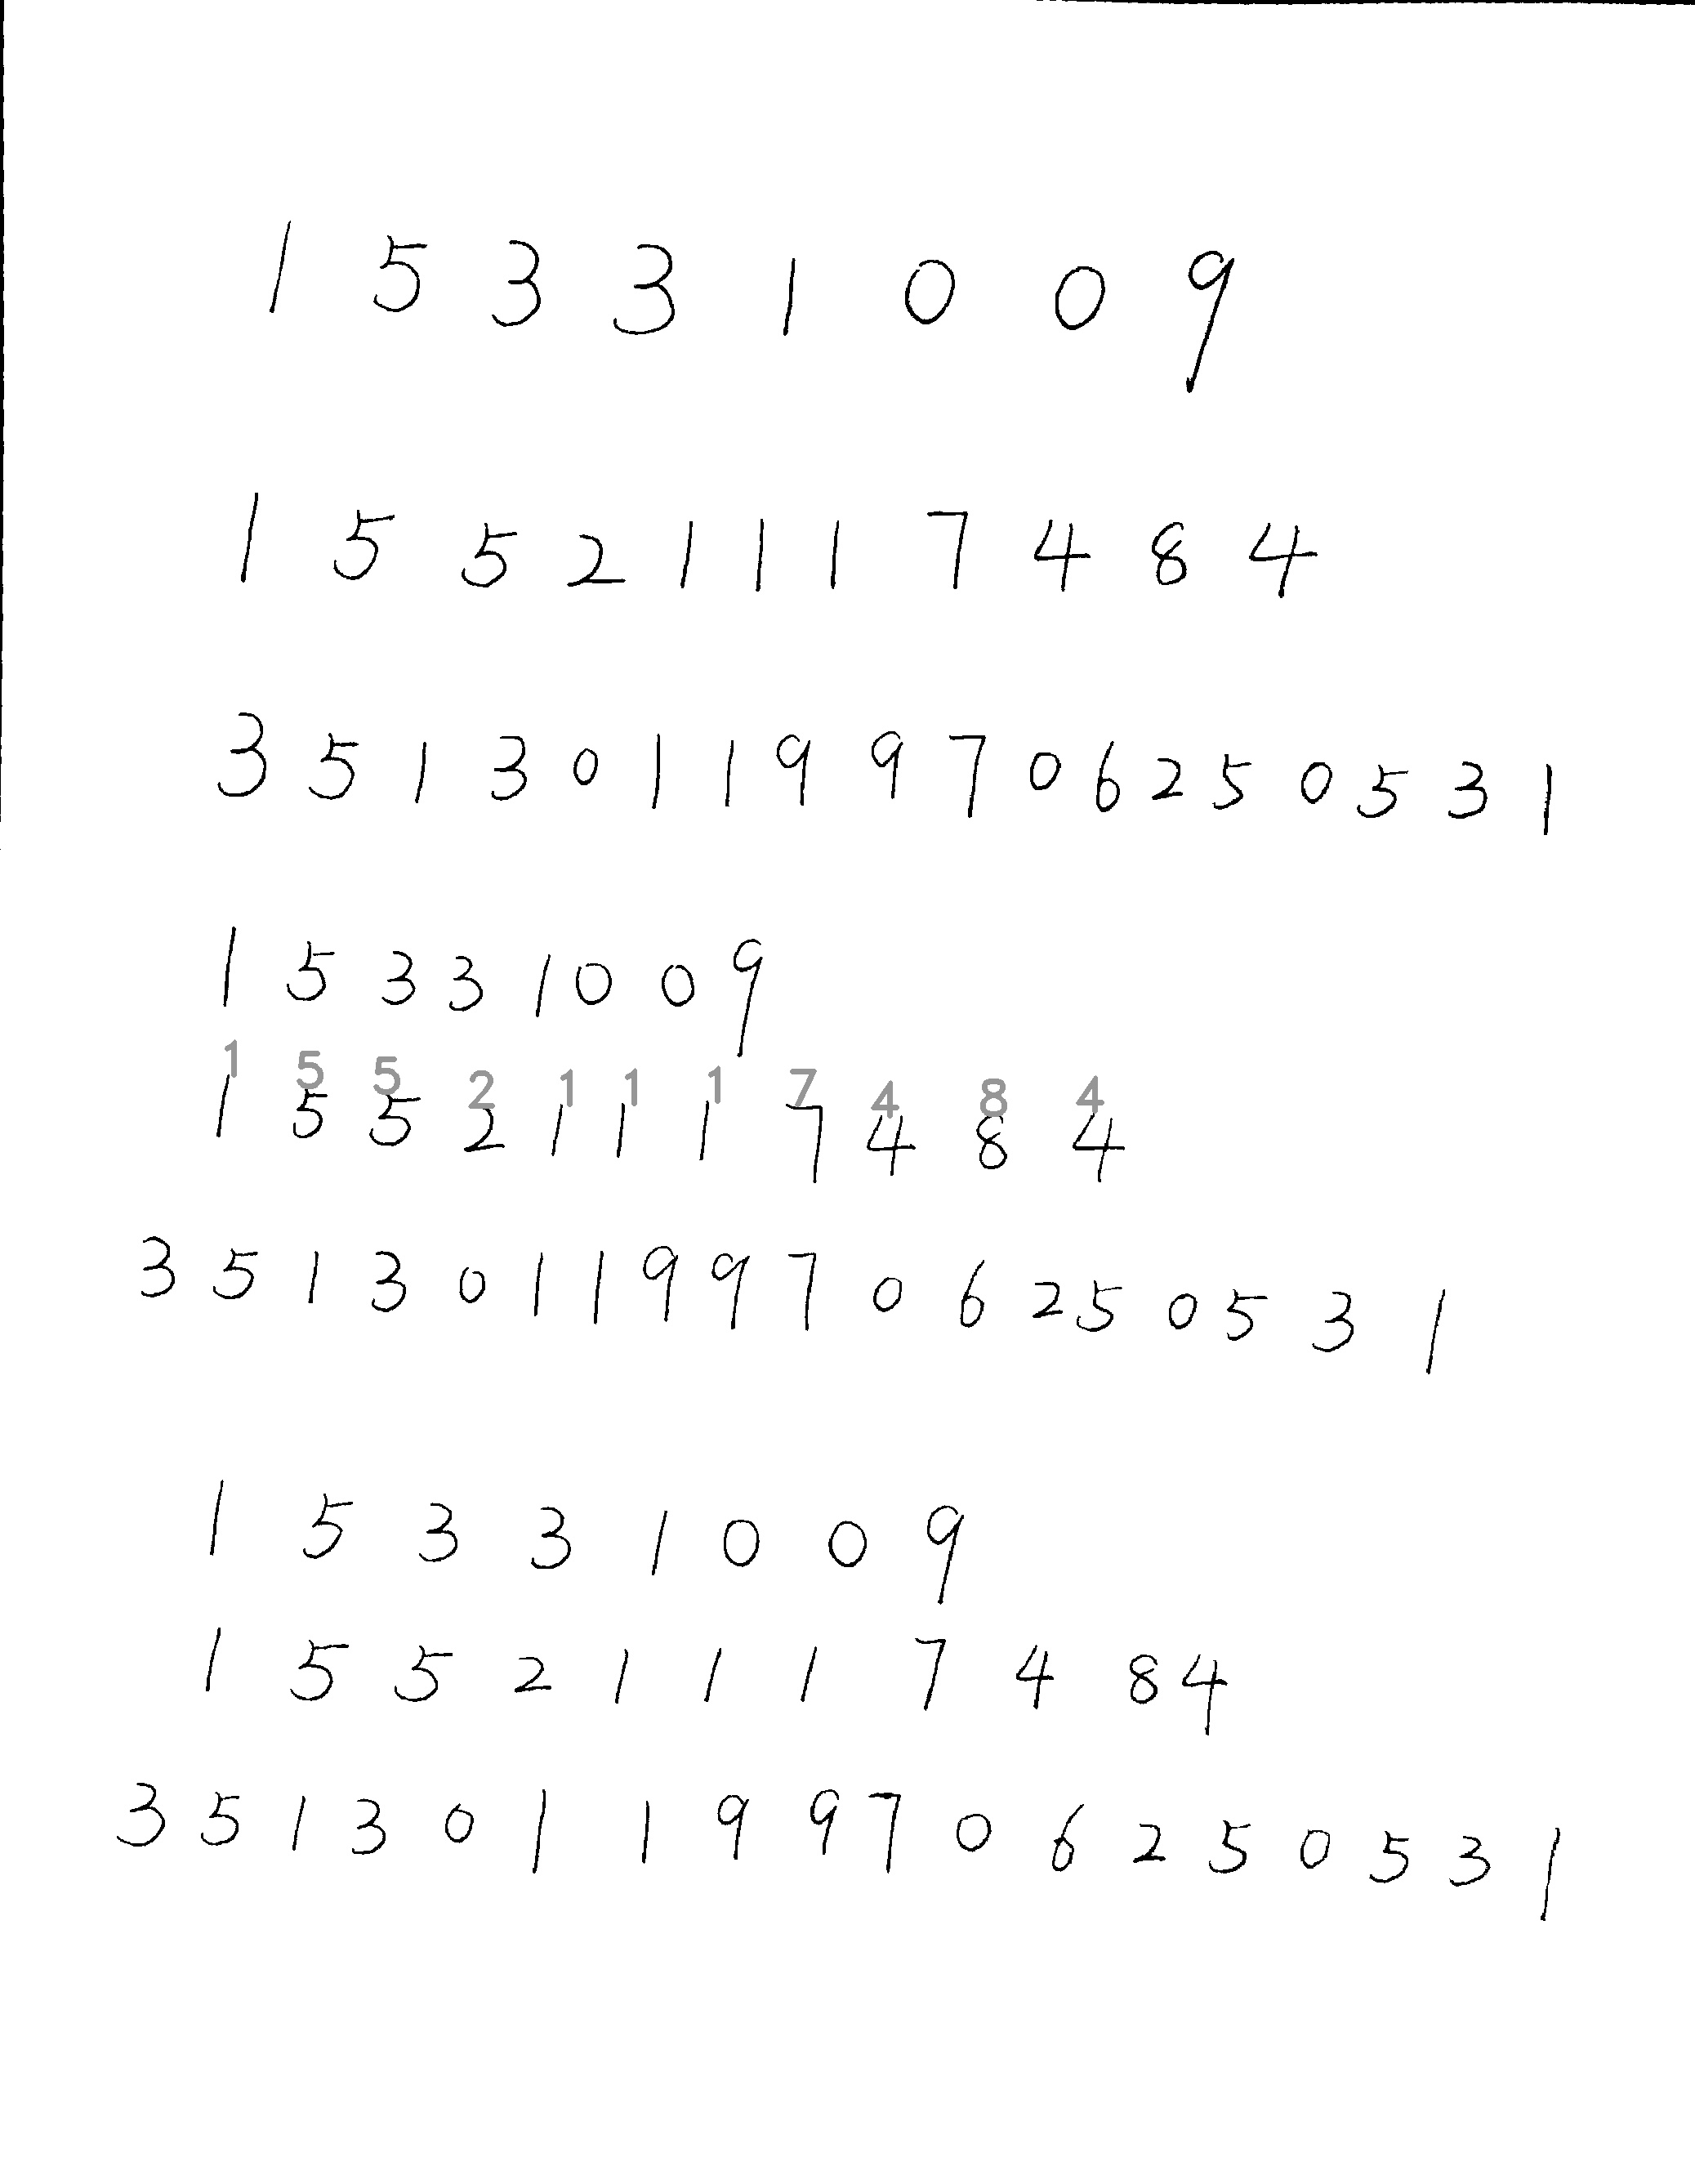 1 5 3 3 1 0 0 9
1 5 5 2 1 1 1 7 4 8 4
3 5 1 3 0 1 1 9 9 7 0 6 2 5 0 5 3 1
1 5 3 3 1 0 0 9
1 5 5 2 1 1 1 7 4 8 4
1 5 5 2 1 1 1 7 4 8 4
3 5 1 3 0 1 1 9 9 7 0 6 2 5 0 5 3 1
1 5 3 3 1 0 0 9
1 5 5 2 1 1 1 7 4 8 4
3 5 1 3 0 1 1 9 9 7 0 6 2 5 0 5 3 1